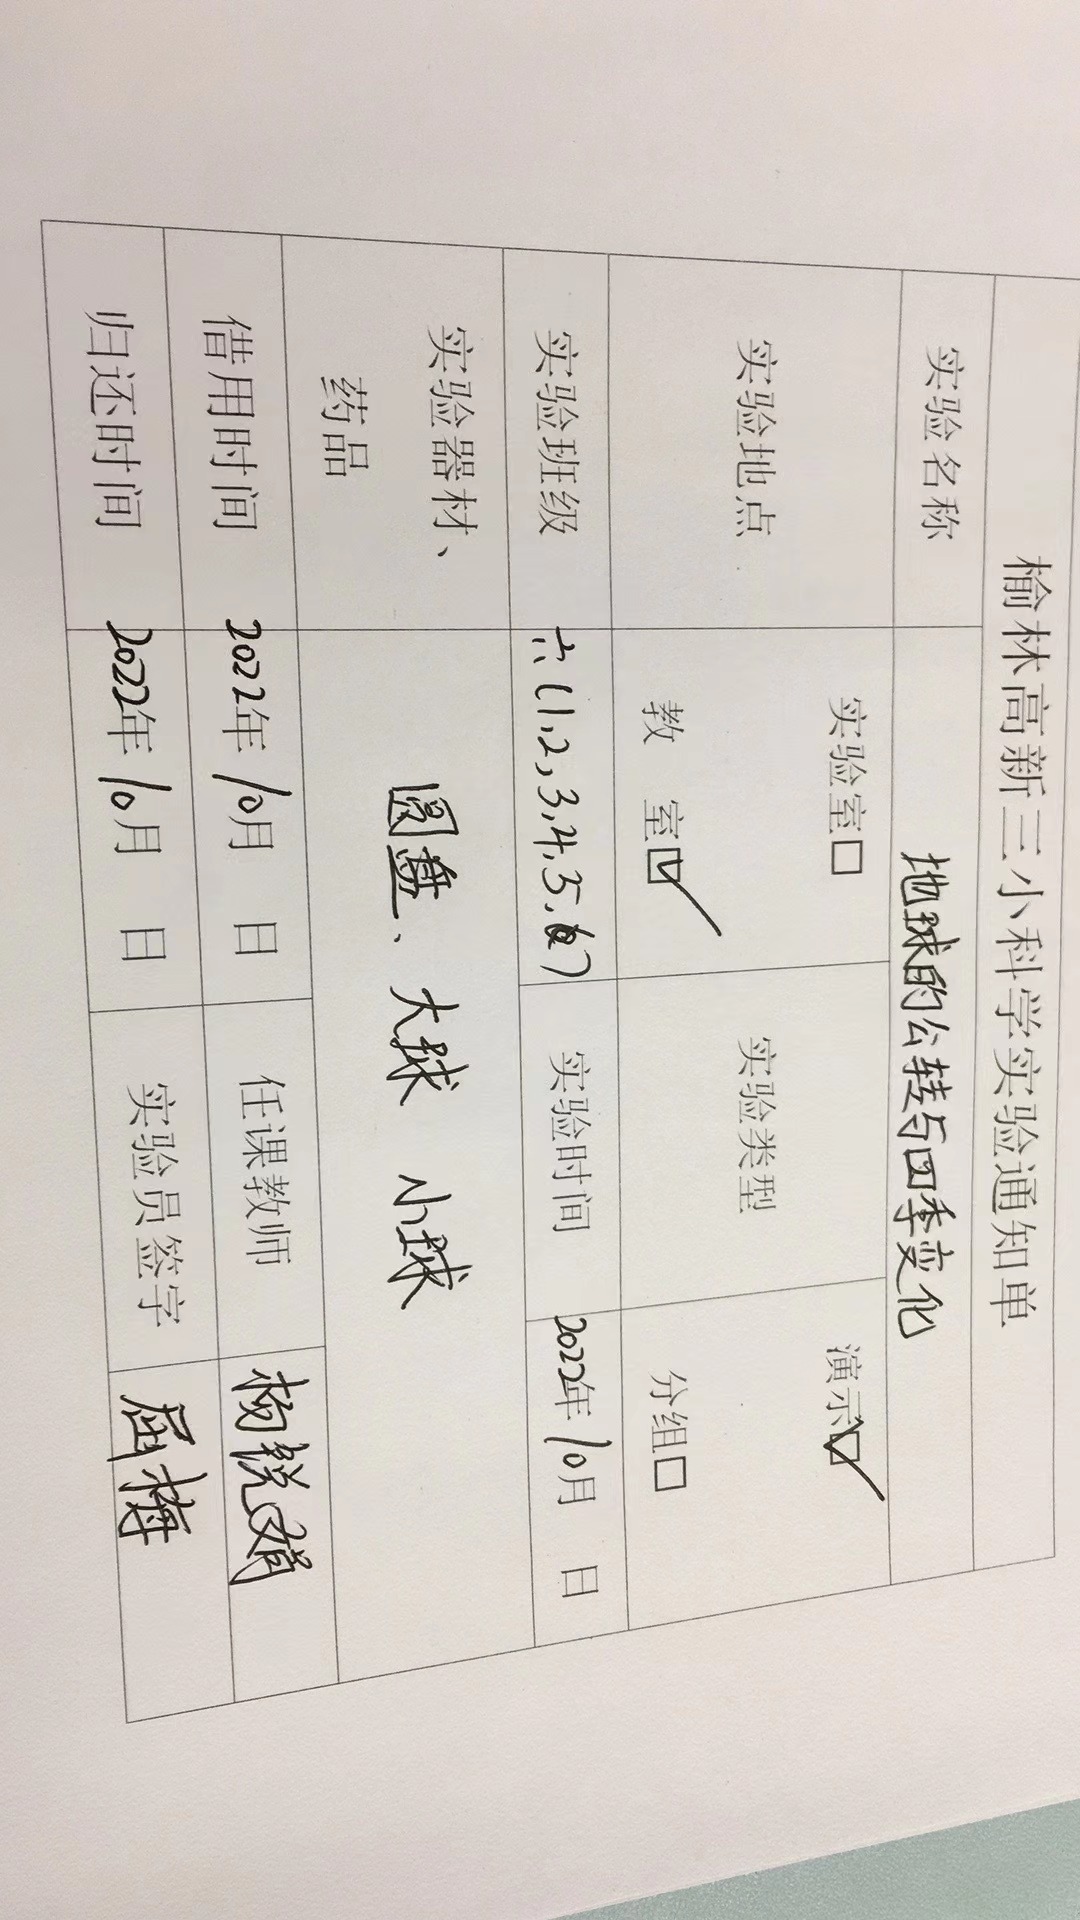 榆林高新三小科学实验通知单
实验名称 地球的公转与四季变化
实验地点 实验室□ 教 室☑ 实验类型 演示☑ 分组□
实验班级 六(1,2,3,4,5,6) 实验时间 2022年10月 日
实验器材、药品 圆盘、大球 小球
借用时间 2022年10月 日 任课教师 杨锐娟
归还时间 2022年10月 日 实验员签字 屈梅